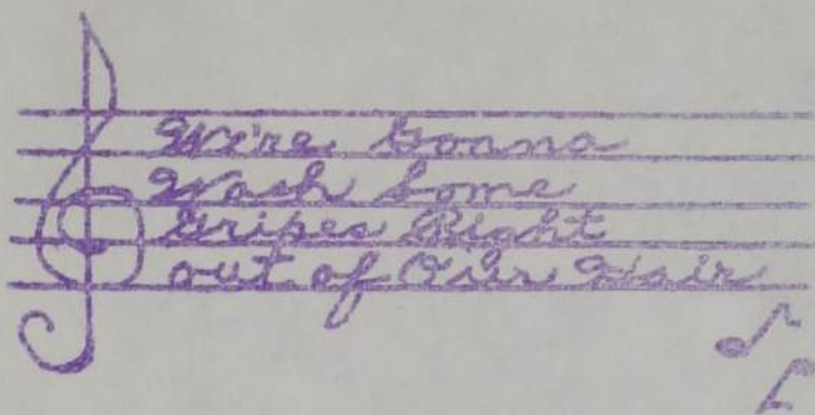 We're Gonna
Wash Some
Gripes Right
out of Our Hair